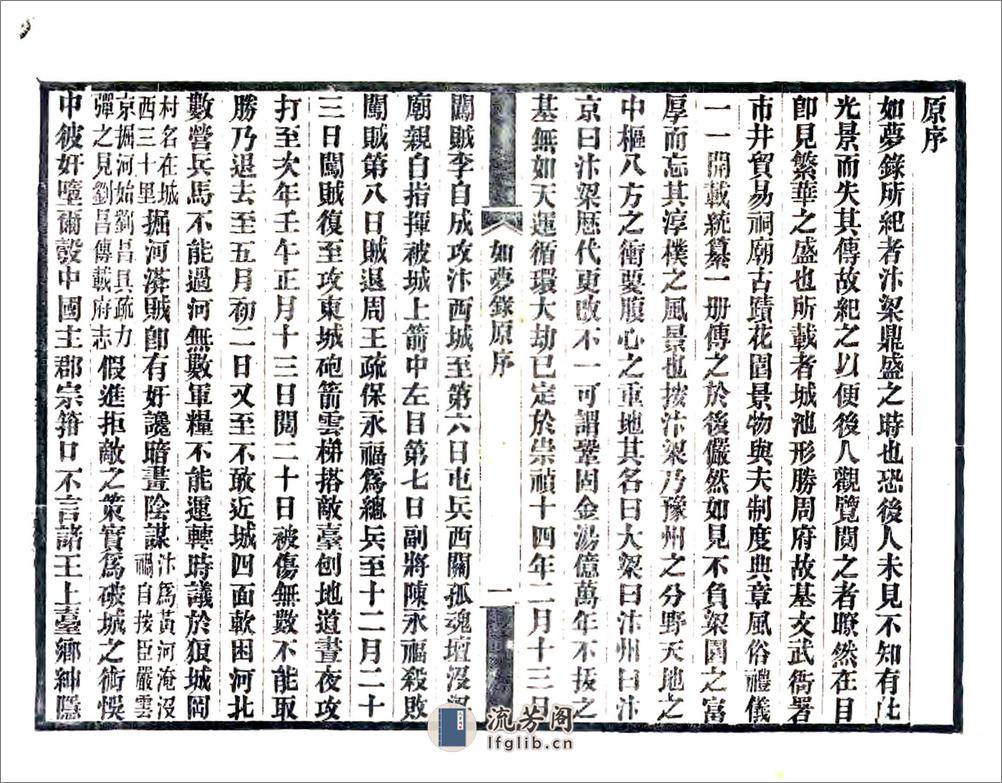 原序
如夢錄所紀者汴梁鼎盛之時也恐後人未見不知有此
光景而失其傳故紀之以便後人觀覽閱之者瞭然在目
卽見繁華之盛也所載者城池形勝周府故基文武衙署
市井貿易祠廟古蹟花園景物與夫制度典章風俗禮儀
一一開載統纂一册傳之於後儼然如見不負梁園之富
厚而忘其淳樸之風景也按汴梁乃豫州之分野天地之
中樞八方之衝要腹心之重地其名曰大梁曰汴州曰汴
京曰汴梁歴代更改不一可謂鞏固金湯億萬年不拔之
基無如天運循環大劫已定於崇禎十四年二月十三日
如夢錄原序
一
闖賊李自成攻汴西城至第六日屯兵西關孤魂壇沒
廟親自指揮被城上箭中左目第七日副將陳永福殺敗
闖賊第八日賊退周王疏保永福爲總兵至十二月二十
三日闖賊復至攻東城砲箭雲梯搭敵臺刨地道晝夜攻
打至次年壬午正月十三日閱二十日被傷無數不能取
勝乃退去至五月初二日又至不敢近城四面軟困河北
數營兵馬不能過河無數軍糧不能運轉時議於狼城岡
村名在城
西三十里
掘河渰賊卽有奸讒暗畫陰謀
汴爲黃河淹沒
禍自按臣嚴雲
京掘河始劉昌具疏力
彈之見劉昌傳載府志
假進拒敵之策實爲破城之術悞
中彼奸墮爾彀中國主郡宗箝口不言諸王上臺鄉紳隱
流芳阁
lfglib.cn